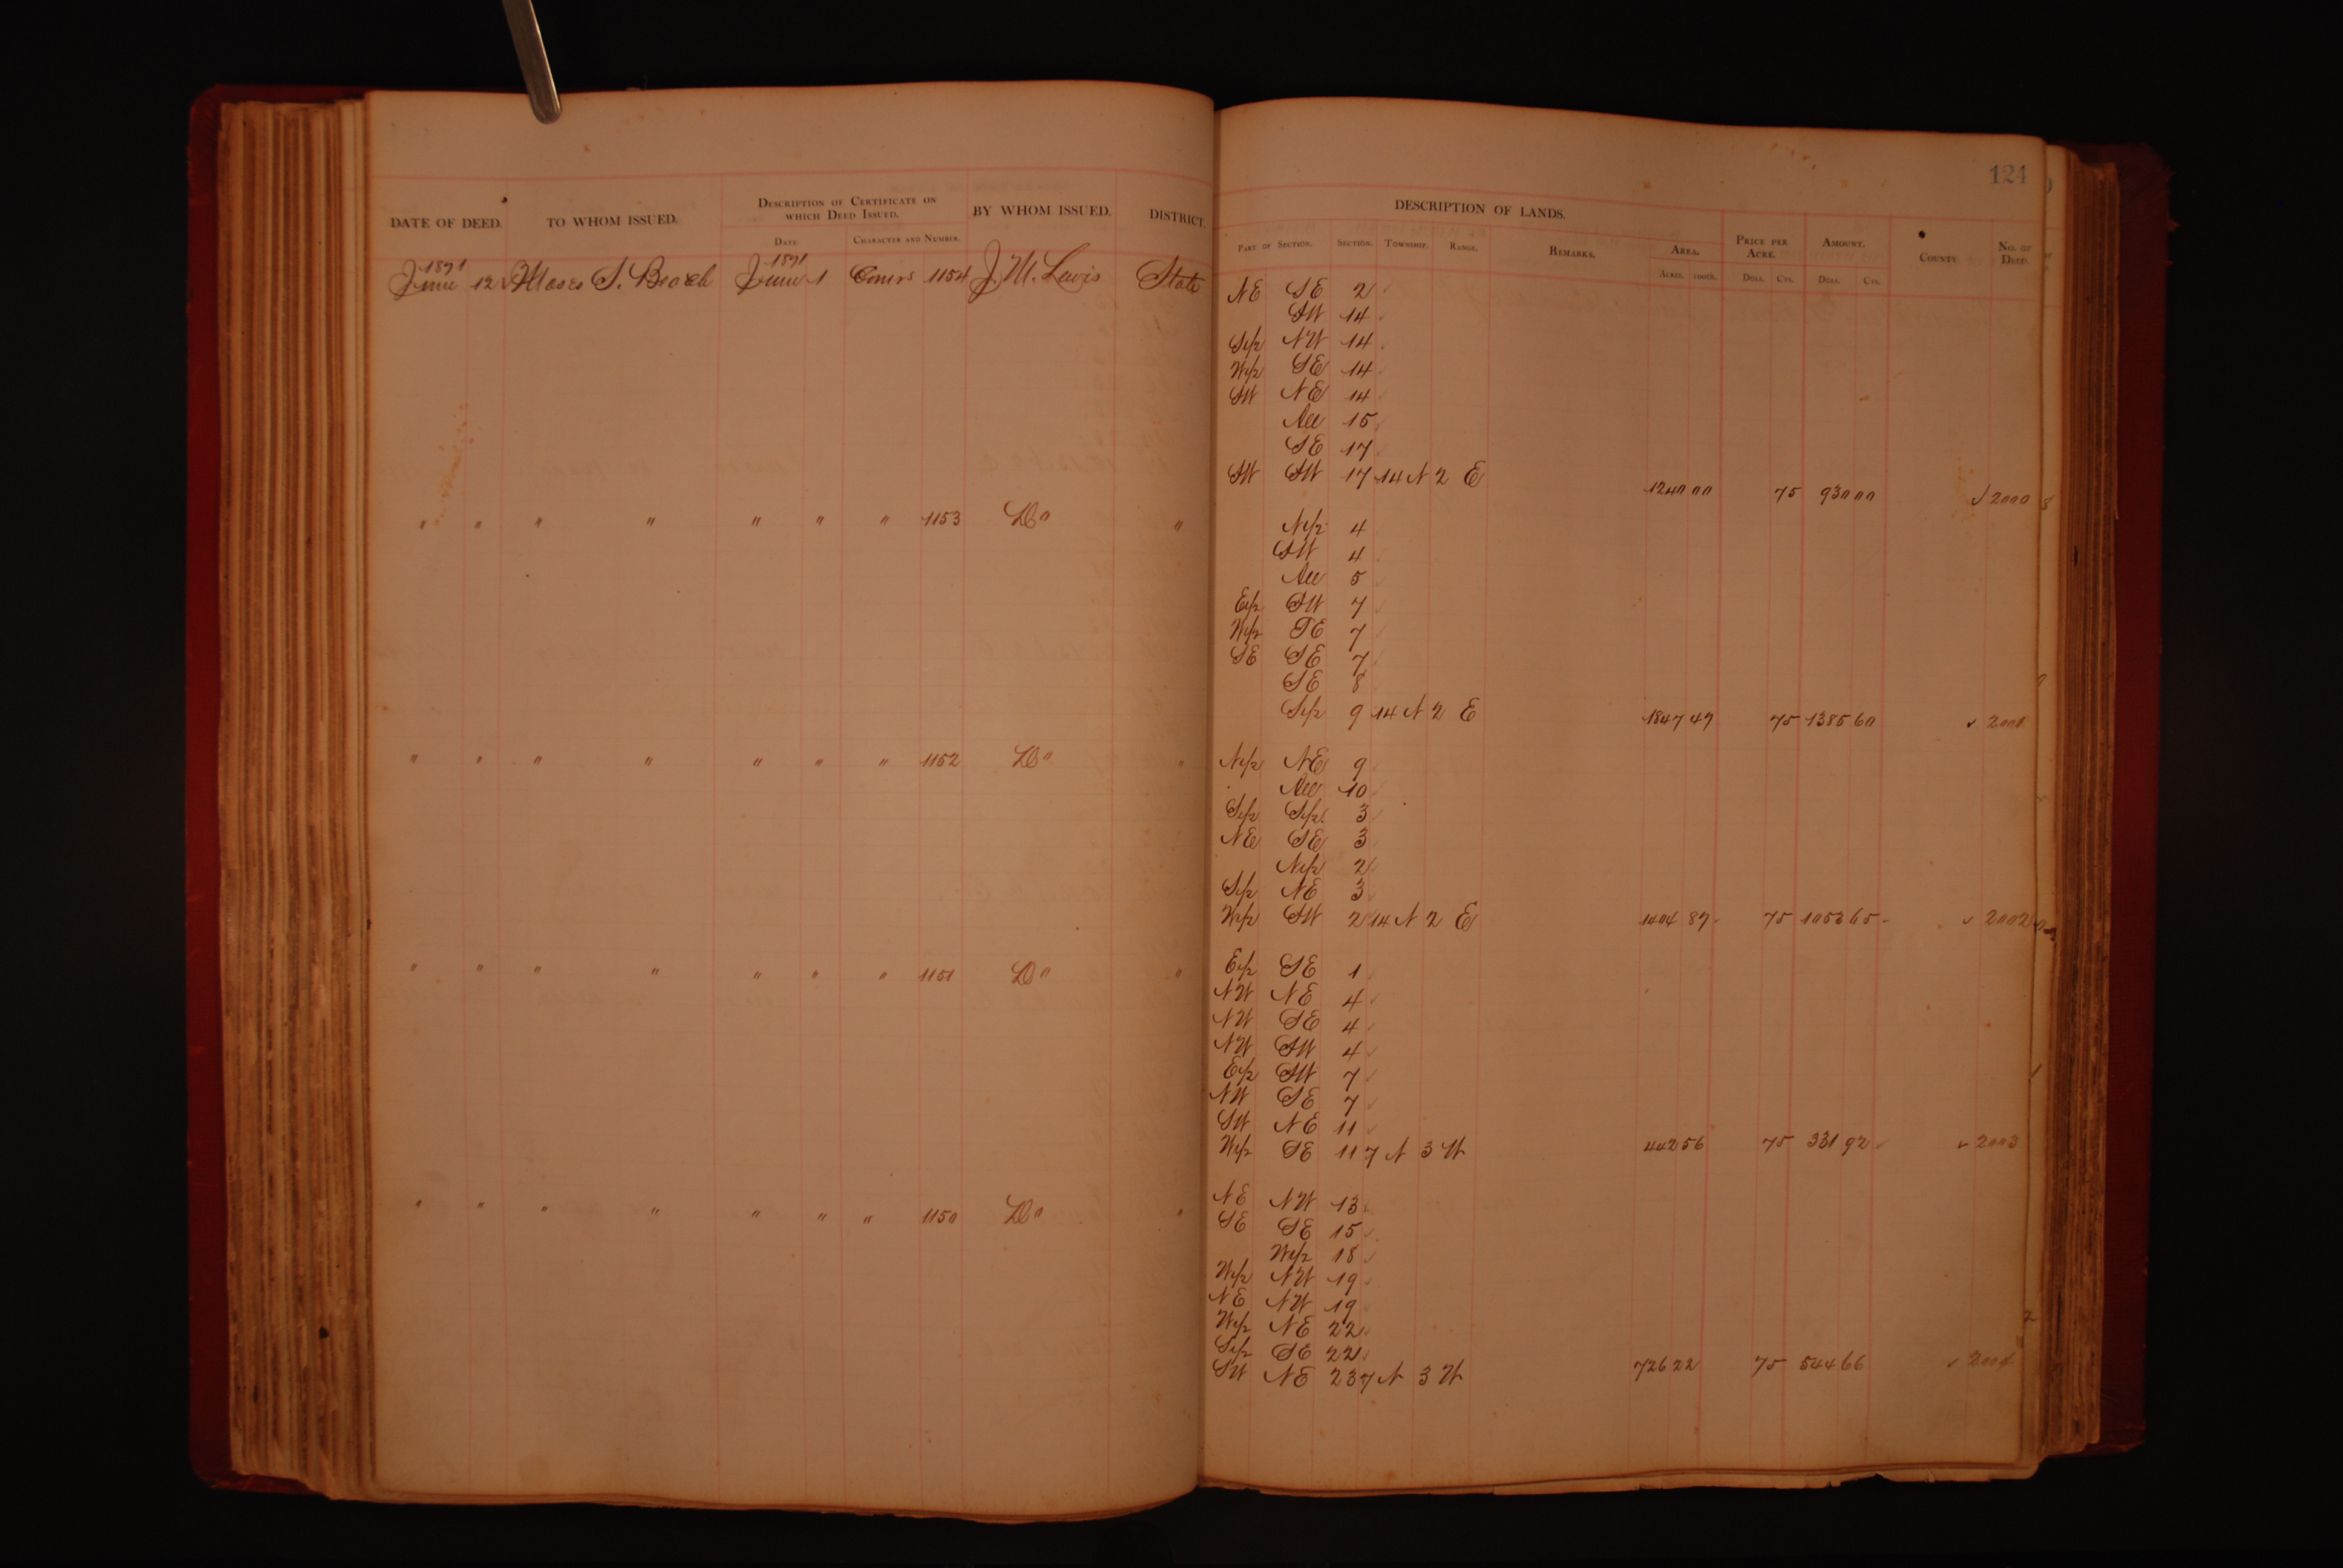 124
DATE OF DEED. TO WHOM ISSUED. DESCRIPTION OF CERTIFICATE ON WHICH DEED ISSUED. BY WHOM ISSUED. DISTRICT. DESCRIPTION OF LANDS. PRICE PER ACRE. AMOUNT. COUNTY NO. OF DEED.
DATE CHARACTER AND NUMBER. PART OF SECTION. SECTION. TOWNSHIP. RANGE. REMARKS. AREA.
ACRES. 100TH. DOLS. CTS. DOLS. CTS.
1871 1871
June 12 Moses S. Beach June 1 Comrs 1154 J. M. Lewis State NE SE 2
SW 14
S1/2 NW 14
W1/2 SE 14
SW NE 14
All 15
SE 17
SW SW 17 14 N 2 E 1240 00 75 930 00 √ 2000
" " " " " " " 1153 Do " N1/2 4
SW 4
All 5
E1/2 SW 7
W1/2 SE 7
SE SE 7
SE 8
S1/2 9 14 N 2 E 1847 47 75 1385 60 √ 2001
" " " " " " " 1152 Do " N1/2 NE 9
All 10
S1/2 S1/2 3
NE SE 3
N1/2 2
S1/2 NE 3
W1/2 SW 2 14 N 2 E 1404 87 75 1053 65 √ 2002
" " " " " " " 1151 Do " E1/2 SE 1
NW NE 4
NW SE 4
NW SW 4
E1/2 SW 7
NW SE 7
SW NE 11
W1/2 SE 11 7 N 3 W 442 56 75 331 92 √ 2003
" " " " " " " 1150 Do " NE NW 13
SE SE 15
W1/2 18
W1/2 NW 19
NE NW 19
W1/2 NE 22
S1/2 SE 22
SW NE 23 7 N 3 W 726 22 75 544 66 √ 2004